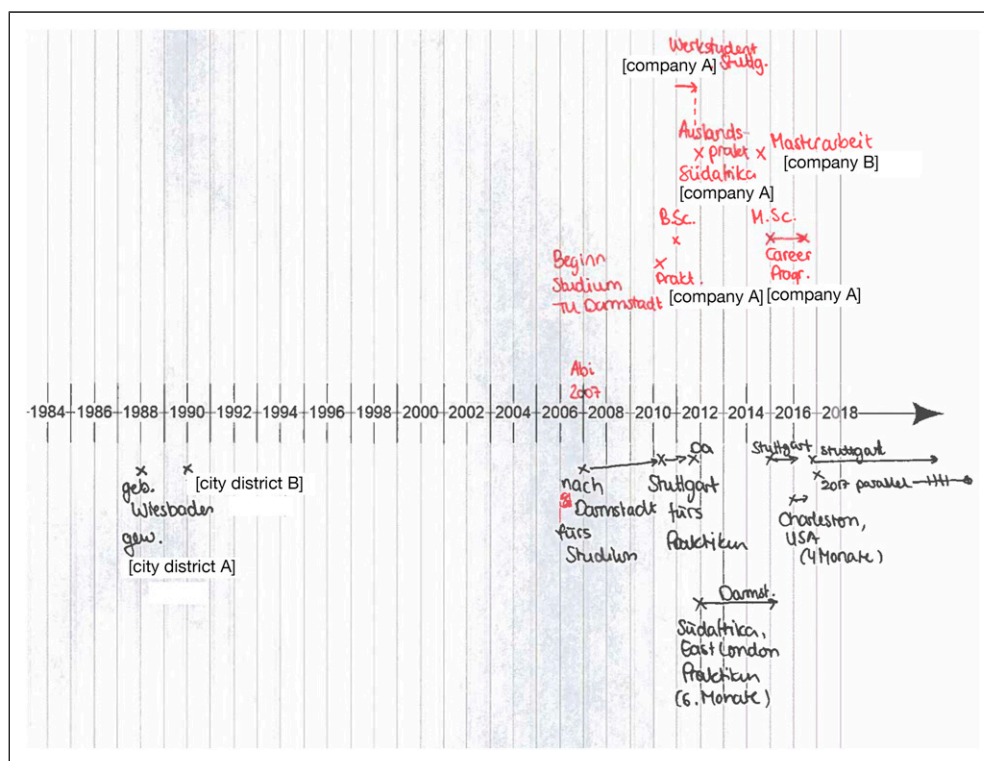 Werkstudent
[company A] Stuttg.
Auslands-
prakt
Südafrika
[company A]
Masterarbeit
[company B]
B.Sc.
Prakt.
[company A]
M.Sc.
Career
Progr.
[company A]
Beginn
Studium
TU Darmstadt
Abi
2007
1984 1986 1988 1990 1992 1994 1996 1998 2000 2002 2004 2006 2008 2010 2012 2014 2016 2018
geb.
Wiesbaden
gew.
[city district A]
[city district B]
nach
Darmstadt
fürs
Studium
Stuttgart
fürs
Praktikum
Da
Stuttgart
Stuttgart
2017 parallel
Charleston,
USA
(4 Monate)
Darmst.
Südafrika,
East London
Praktikum
(6. Monate)